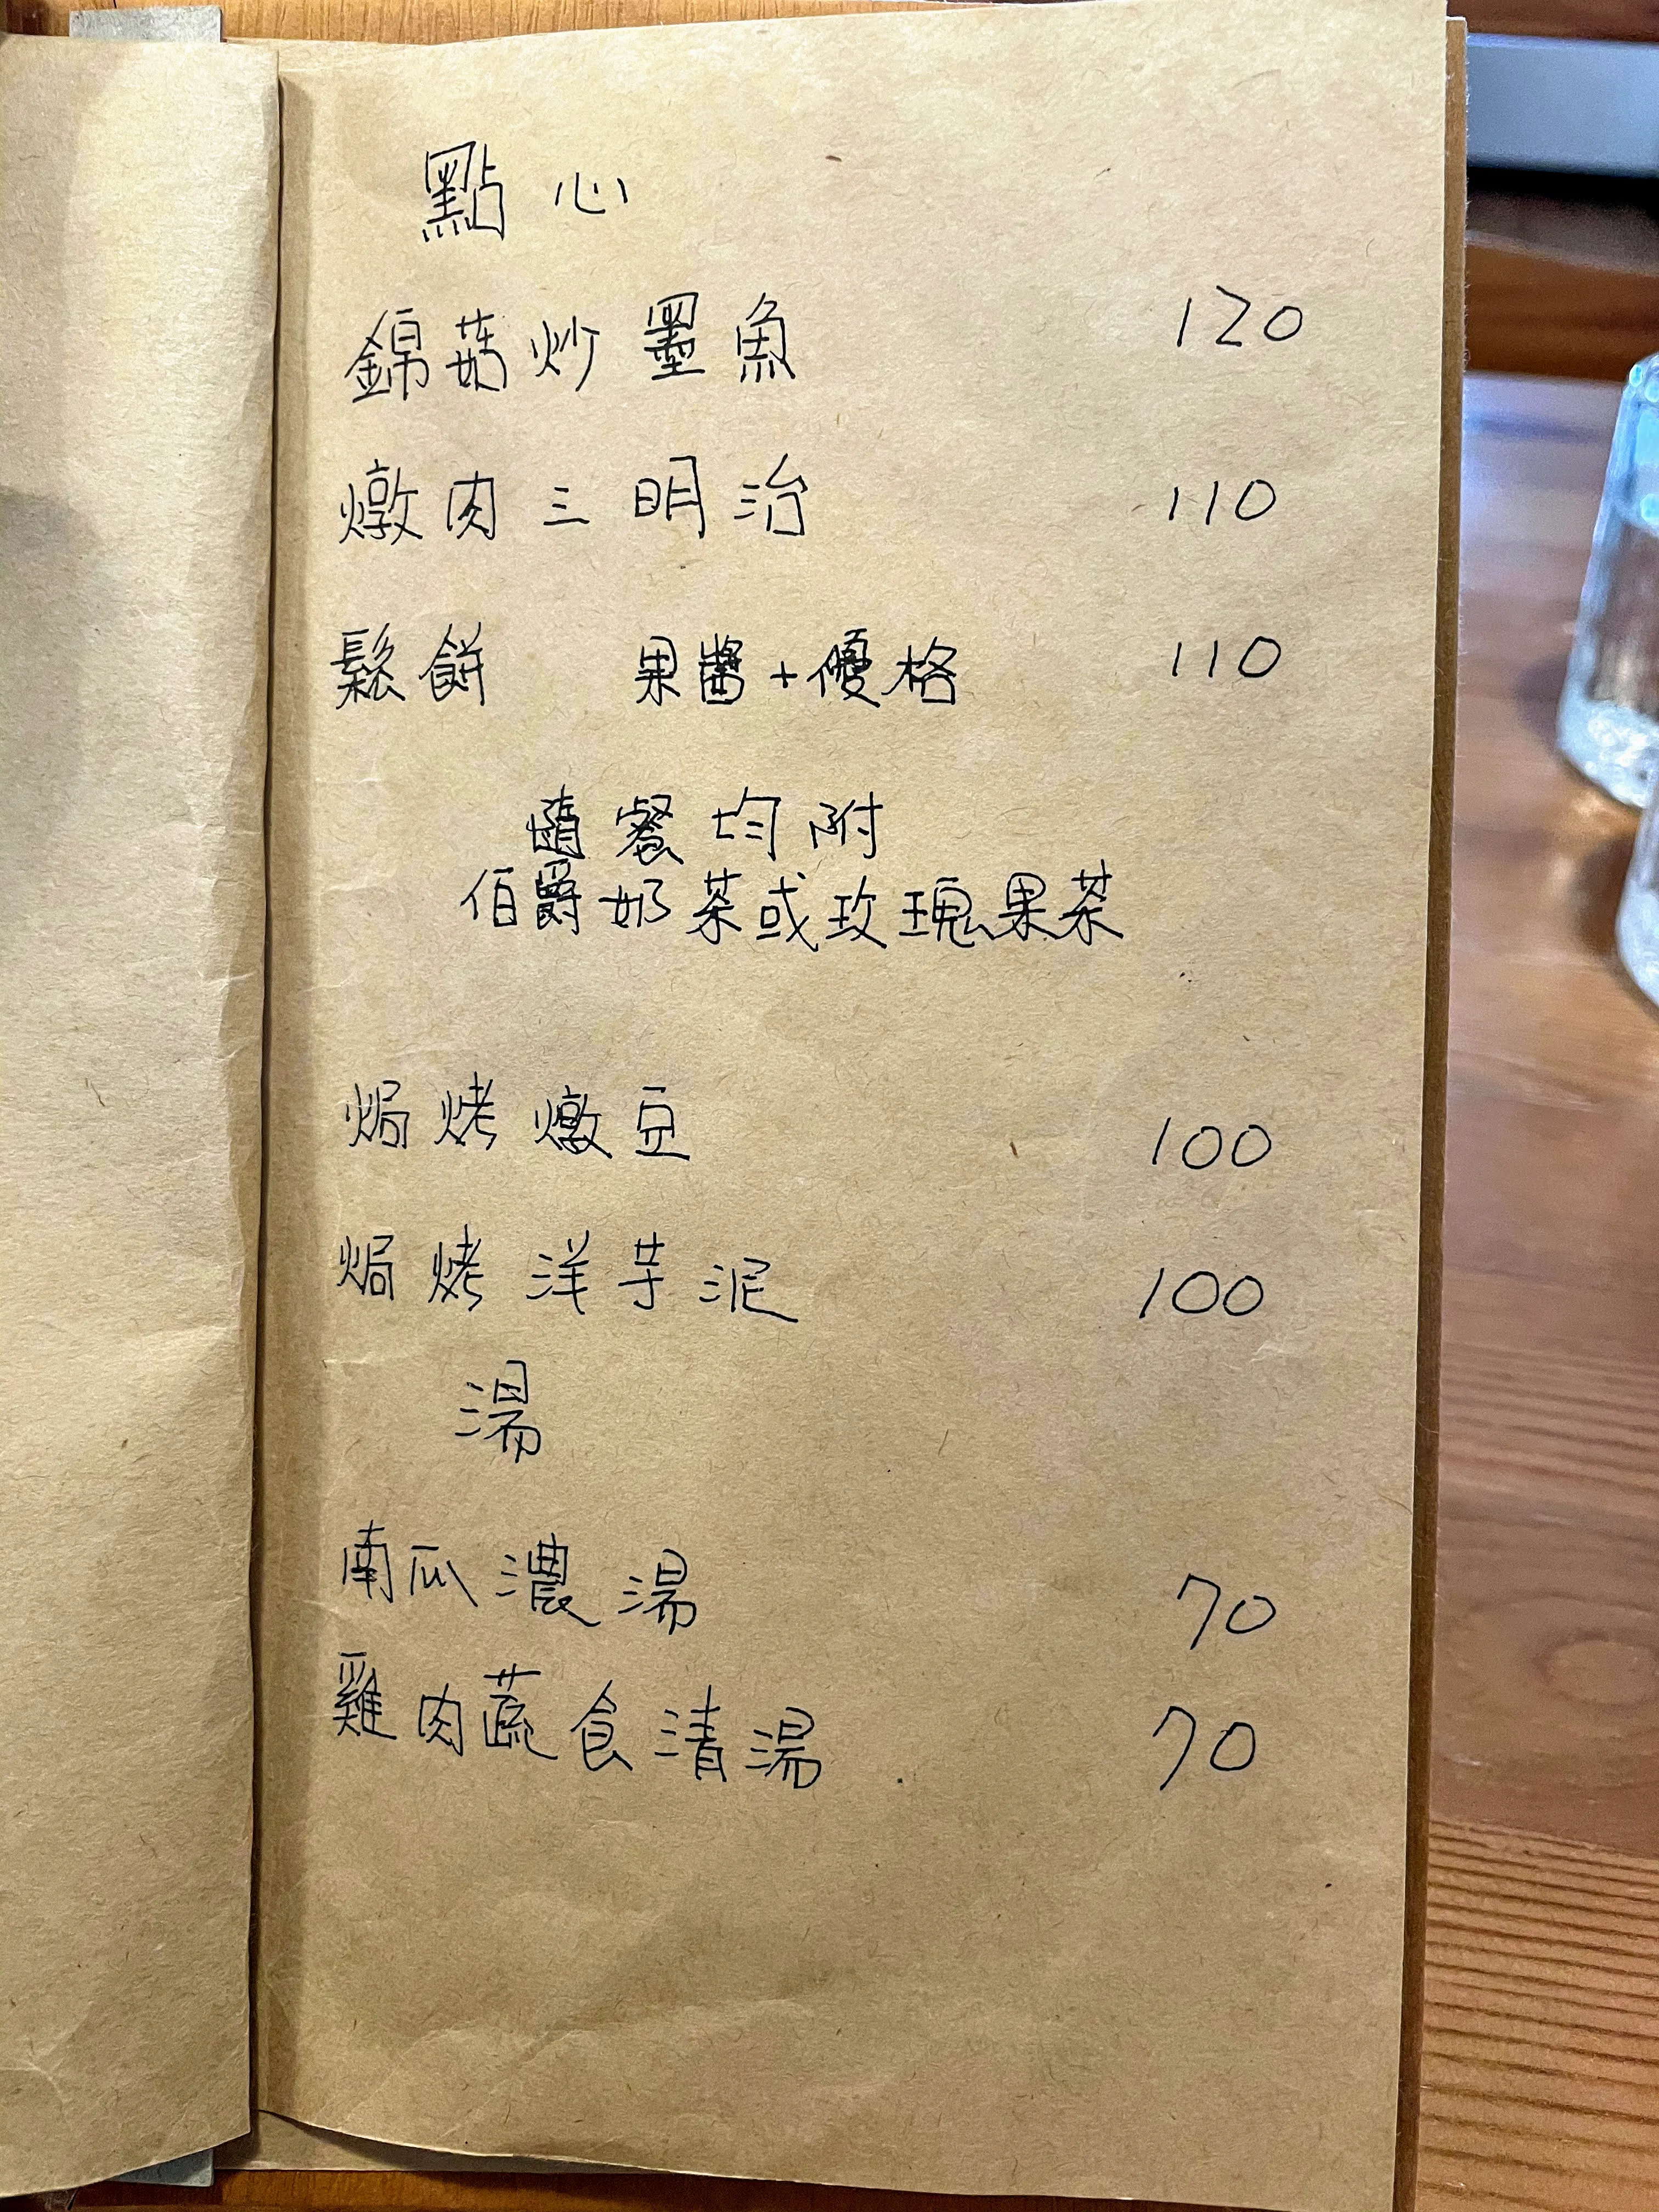 點心
錦菇炒墨魚 120
燉肉三明治 110
鬆餅 果醬+優格 110
隨餐均附
伯爵奶茶或玫瑰果茶
焗烤燉豆 100
焗烤洋芋泥 100
湯
南瓜濃湯 70
雞肉蔬食清湯 70